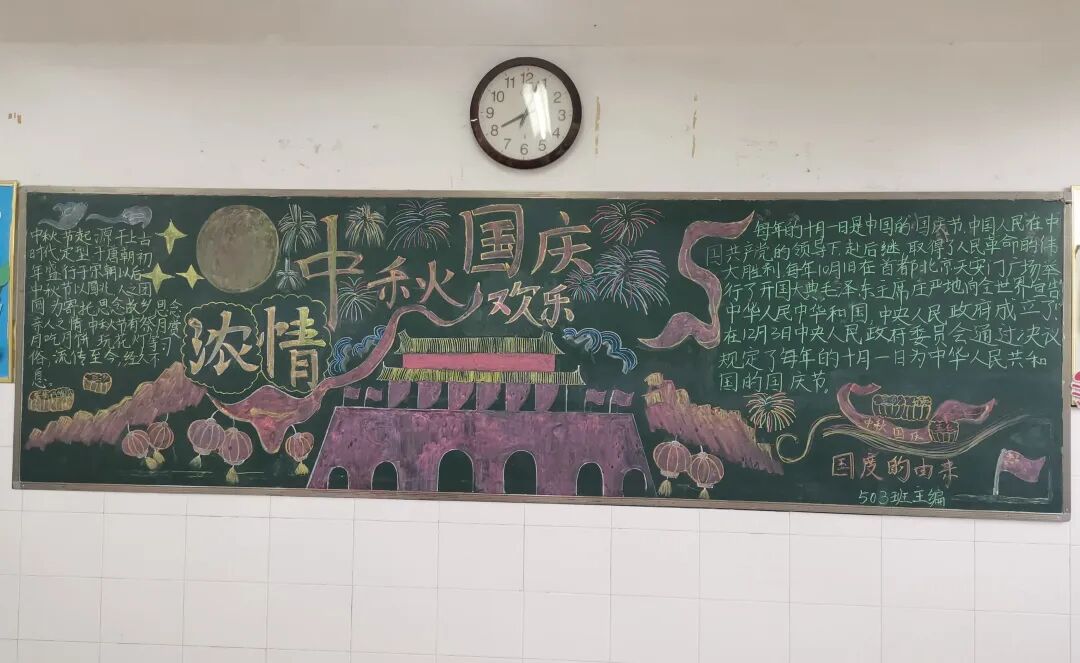 12
1
2
3
4
5
6
7
8
9
10
11
中秋节起源于上古
时代定型于唐朝初
年盛行于宋朝以后
中秋节以圆北人之团
圆为寄托思念故乡思念
亲人之情 中秋节有祭月赏
月吃月饼 玩花灯等习
俗 流传至今,经久不
息。
浓情
中秋
国庆
欢乐
每年的十月一日是中国的国庆节,中国人民在中
国共产党的领导下 赴后继 取得了人民革命的伟
大胜利 每年10月1日在首都北京天安门广场举
行了开国大典 毛泽东主席庄严地向全世界宣告
中华人民中华和国 中央人民政府成立了
在12月3日中央人民政府委员会通过决议
规定了每年的十月一日为中华人民共和
国的国庆节。
中秋国庆
国度的由来
503班主编